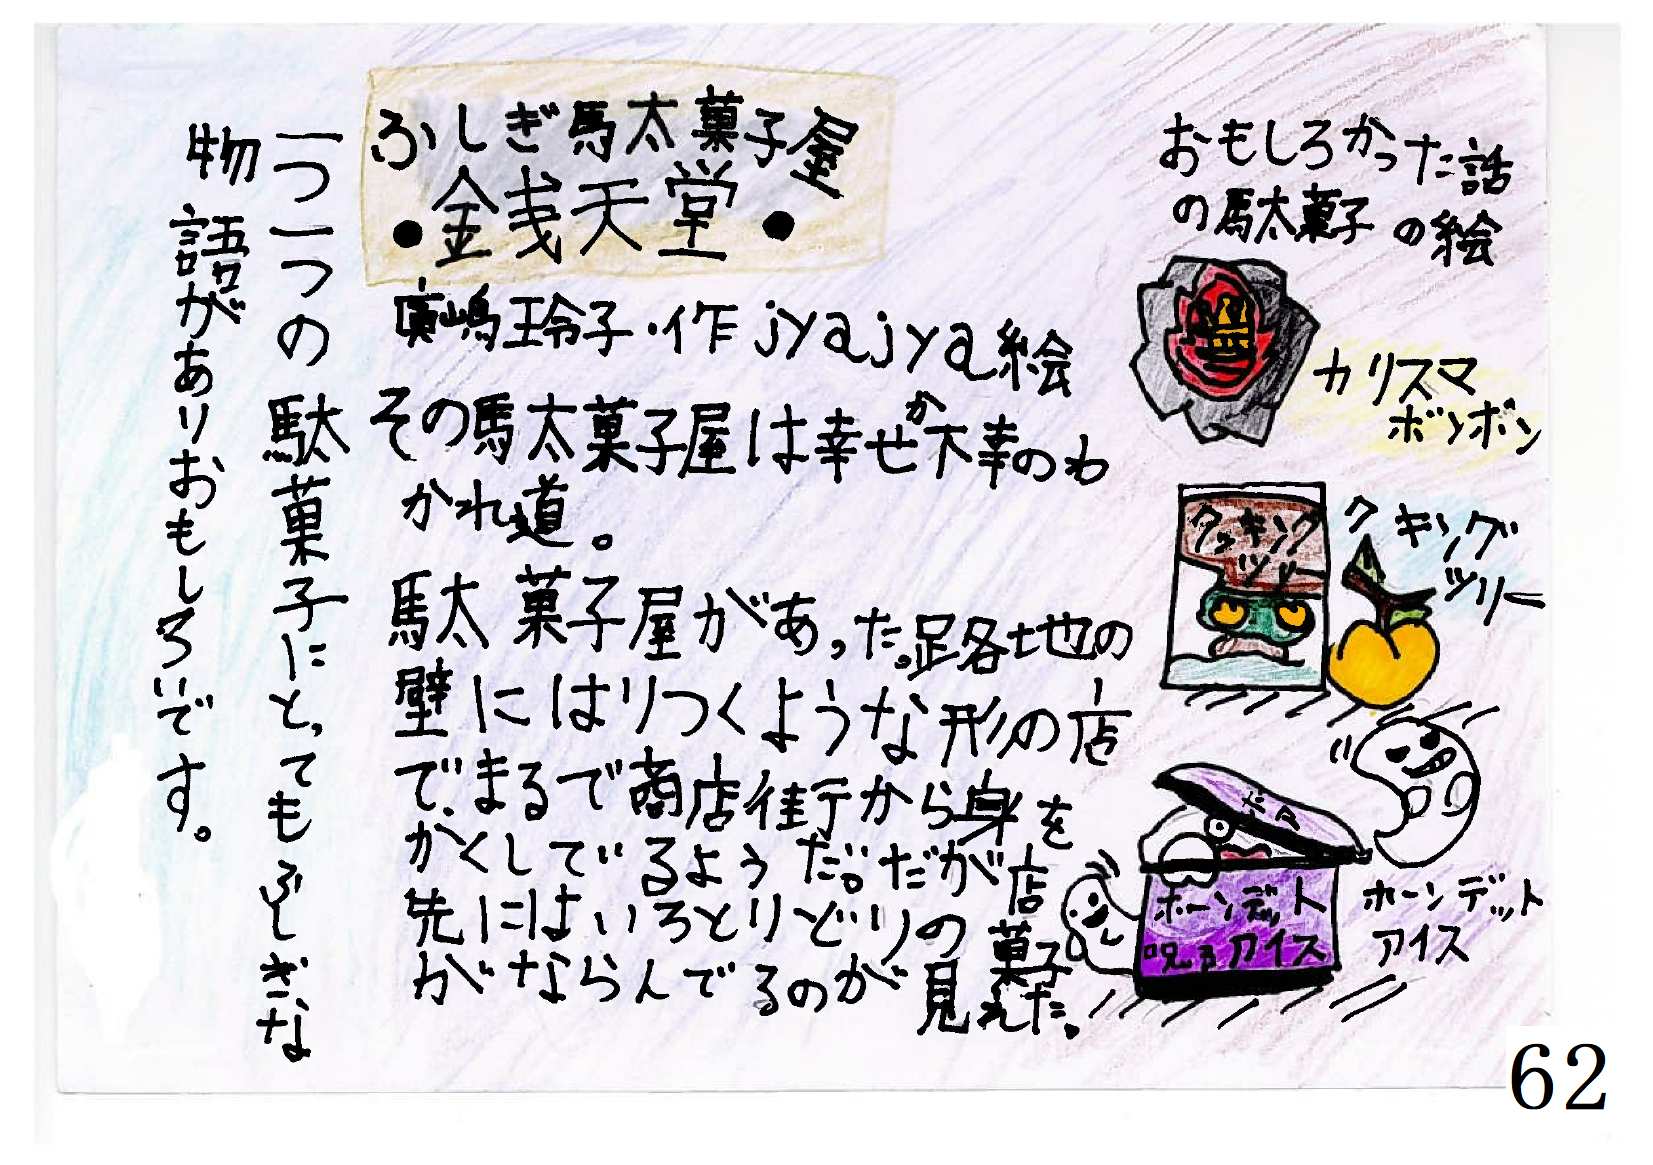 ふしぎ駄菓子屋
・銭天堂・
廣嶋玲子・作 jyajya絵
その駄菓子屋は幸せか不幸のわ
かれ道。
駄菓子屋があった。路地の
壁にはりつくような形の店
で、まるで商店街から身を
かくしているようだ。だが店
先にはいろとりどりの菓子
がならんでるのが見えた。
一つ一つの駄菓子にとってもふしぎな
物語がありおもしろいです。
おもしろかった話
の駄菓子の絵
カリスマ
ボンボン
クッキング
ツリー
クッキング
ツリー
ホーンデット
呪るアイス
ホーンデット
アイス
62